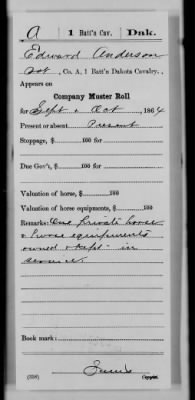 A | 1 Batt'n Cav. | Dak.
Edward Anderson
Pvt., Co. A, 1 Batt'n Dakota Cavalry.
Appears on
Company Muster Roll
for Sept & Oct, 1864
Present or absent Present
Stoppage, $ 100 for
Due Gov't, $ 100
Valuation of horse, $ 100
Valuation of horse equipments, $ 100
Remarks: One private horse
& horse equipments
owned & kept in
service.
Book mark:
(358)
Copyist.